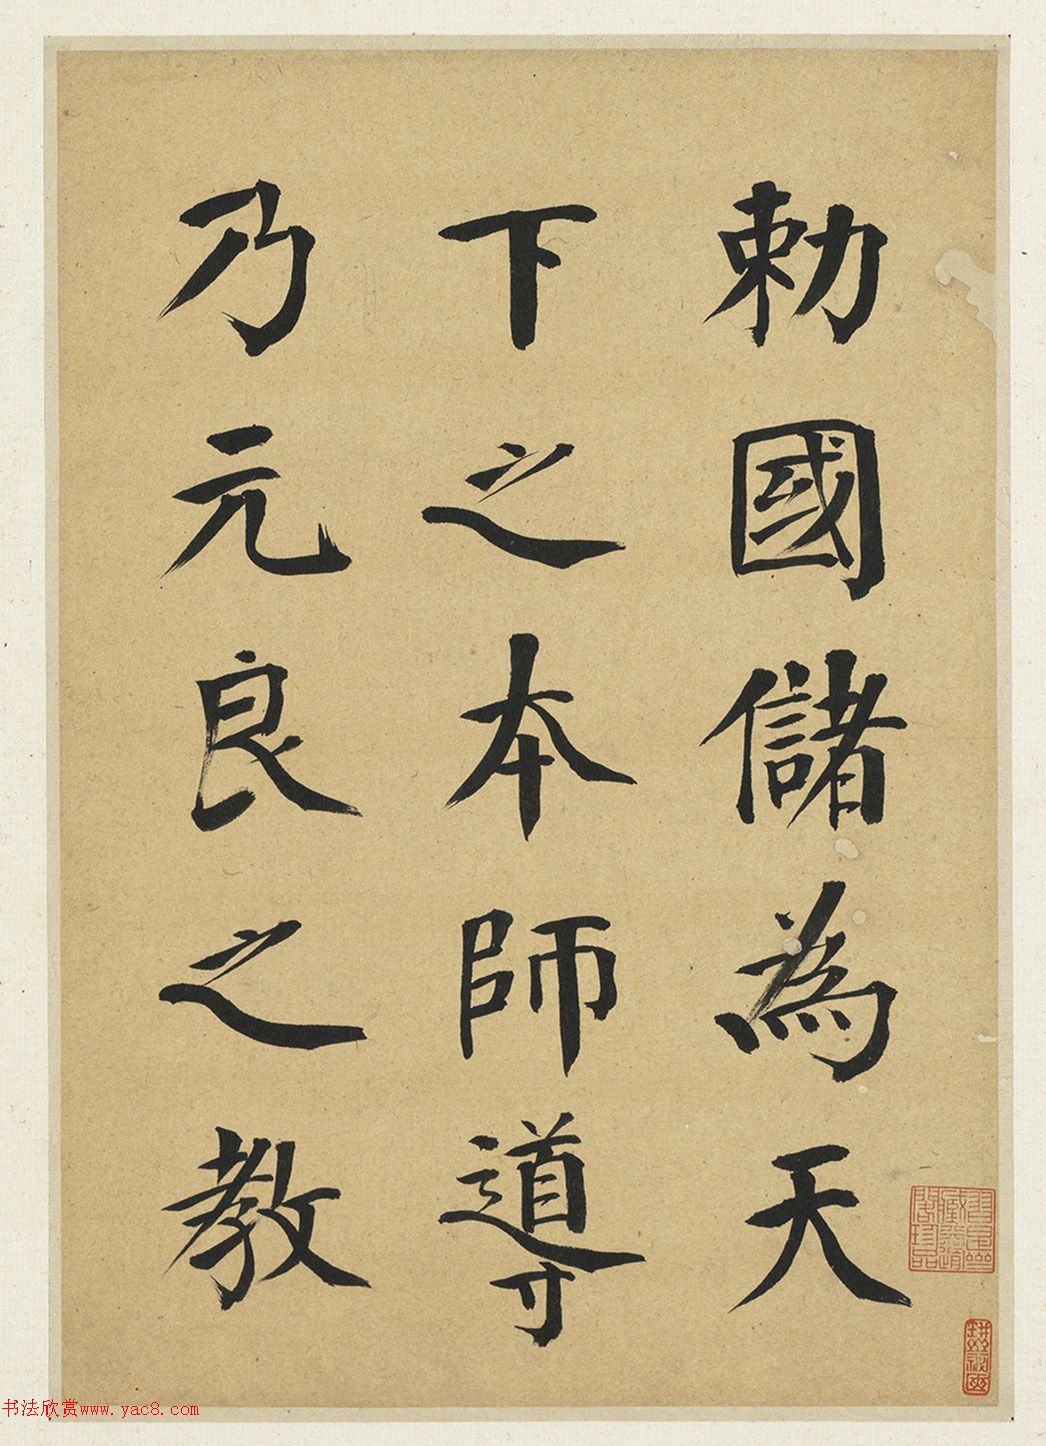 勅國儲為天
下之本師導
乃元良之教
书法欣赏www.yac8.com